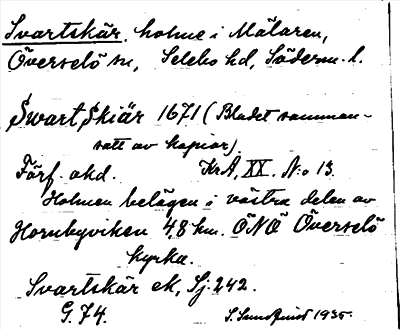 Svartskär, holme i Mälaren,
Överselö sn, Selebo hd, Söderm. l.
Swart Skiär 1671 (Bladet samman-
satt av kopior)
Förf. okd. KrA, XX. N:o 13.
Holmen belägen i västra delen av
Hornbyviken 4,8 km. ÖNÖ Överselö
kyrka.
Svartskär ek, Sj. 242.
G. 74. S. Sundquist 1935.